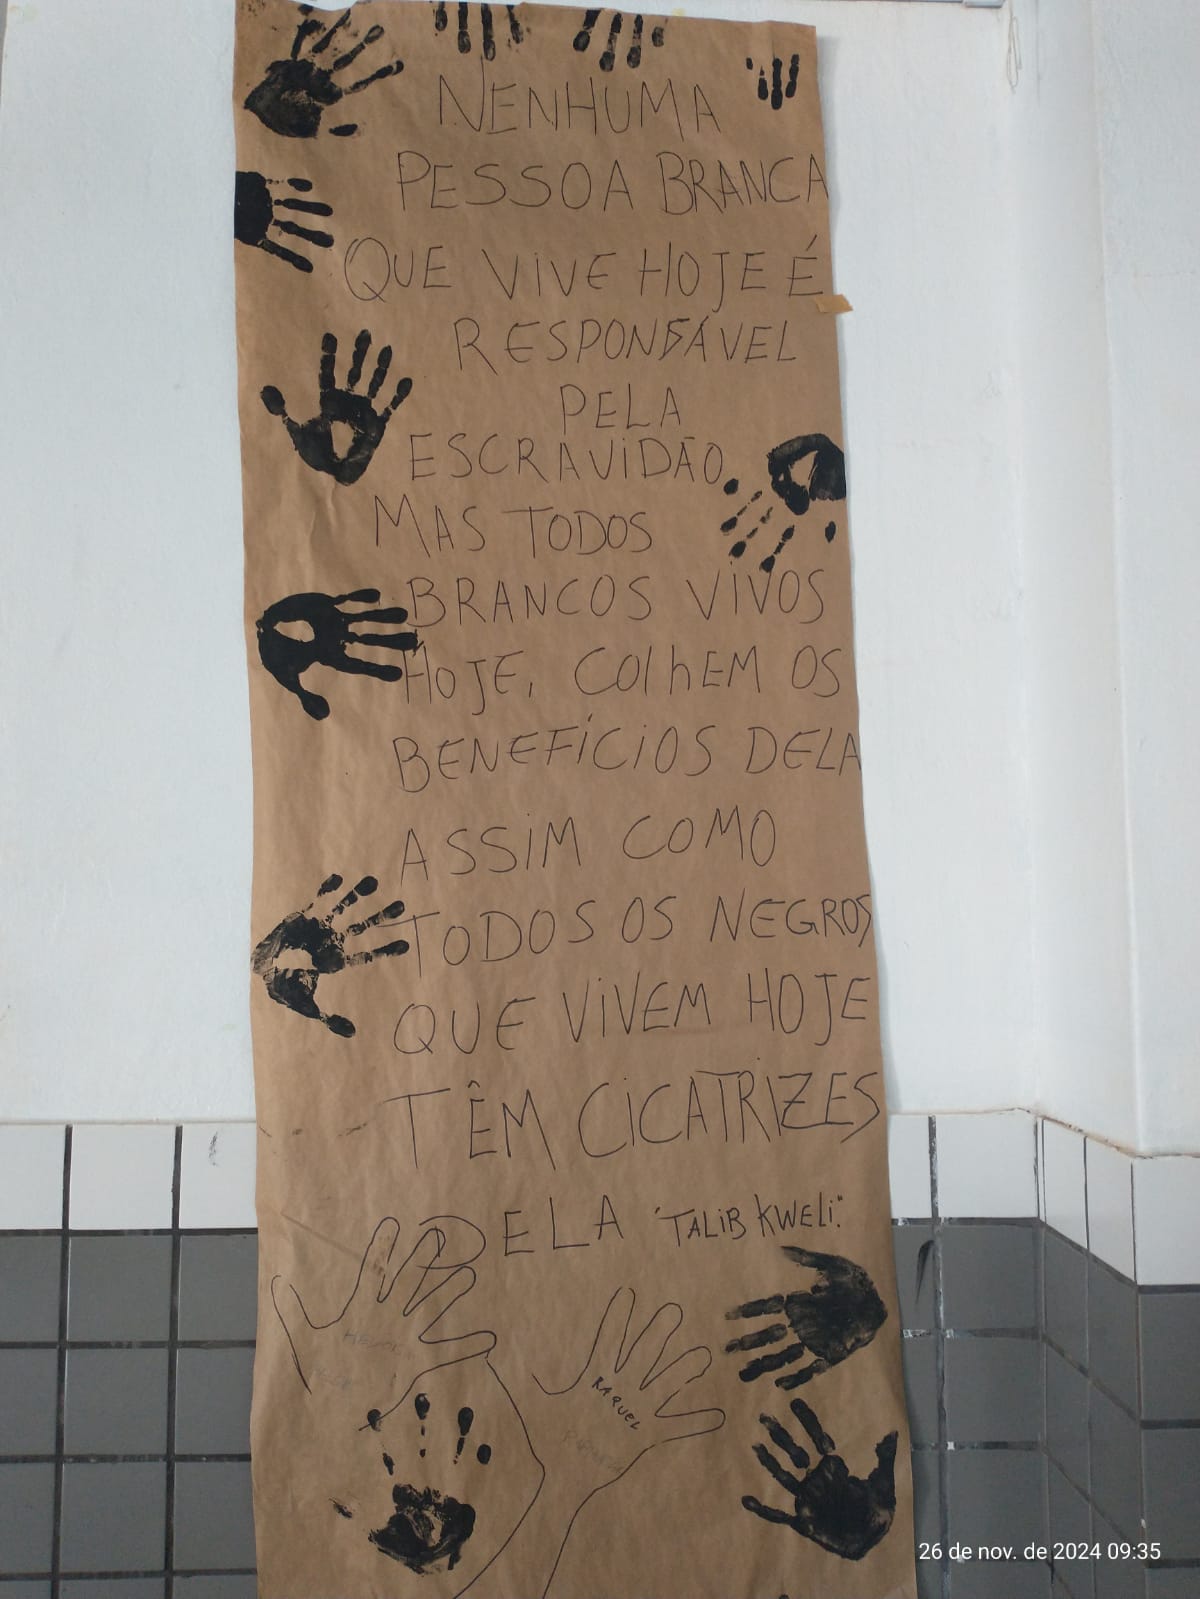 NENHUMA
PESSOA BRANCA
QUE VIVE HOJE É
RESPONSÁVEL
PELA
ESCRAVIDÃO,
MAS TODOS
BRANCOS VIVOS
HOJE, COLhEM OS
BENEFÍCIOS DELA
ASSIM COMO
TODOS OS NEGROS
QUE VIVEM HOJE
TÊM CICATRIZES
DELA "TALIB KWELI."
RAQUEL
26 de nov. de 2024 09:35